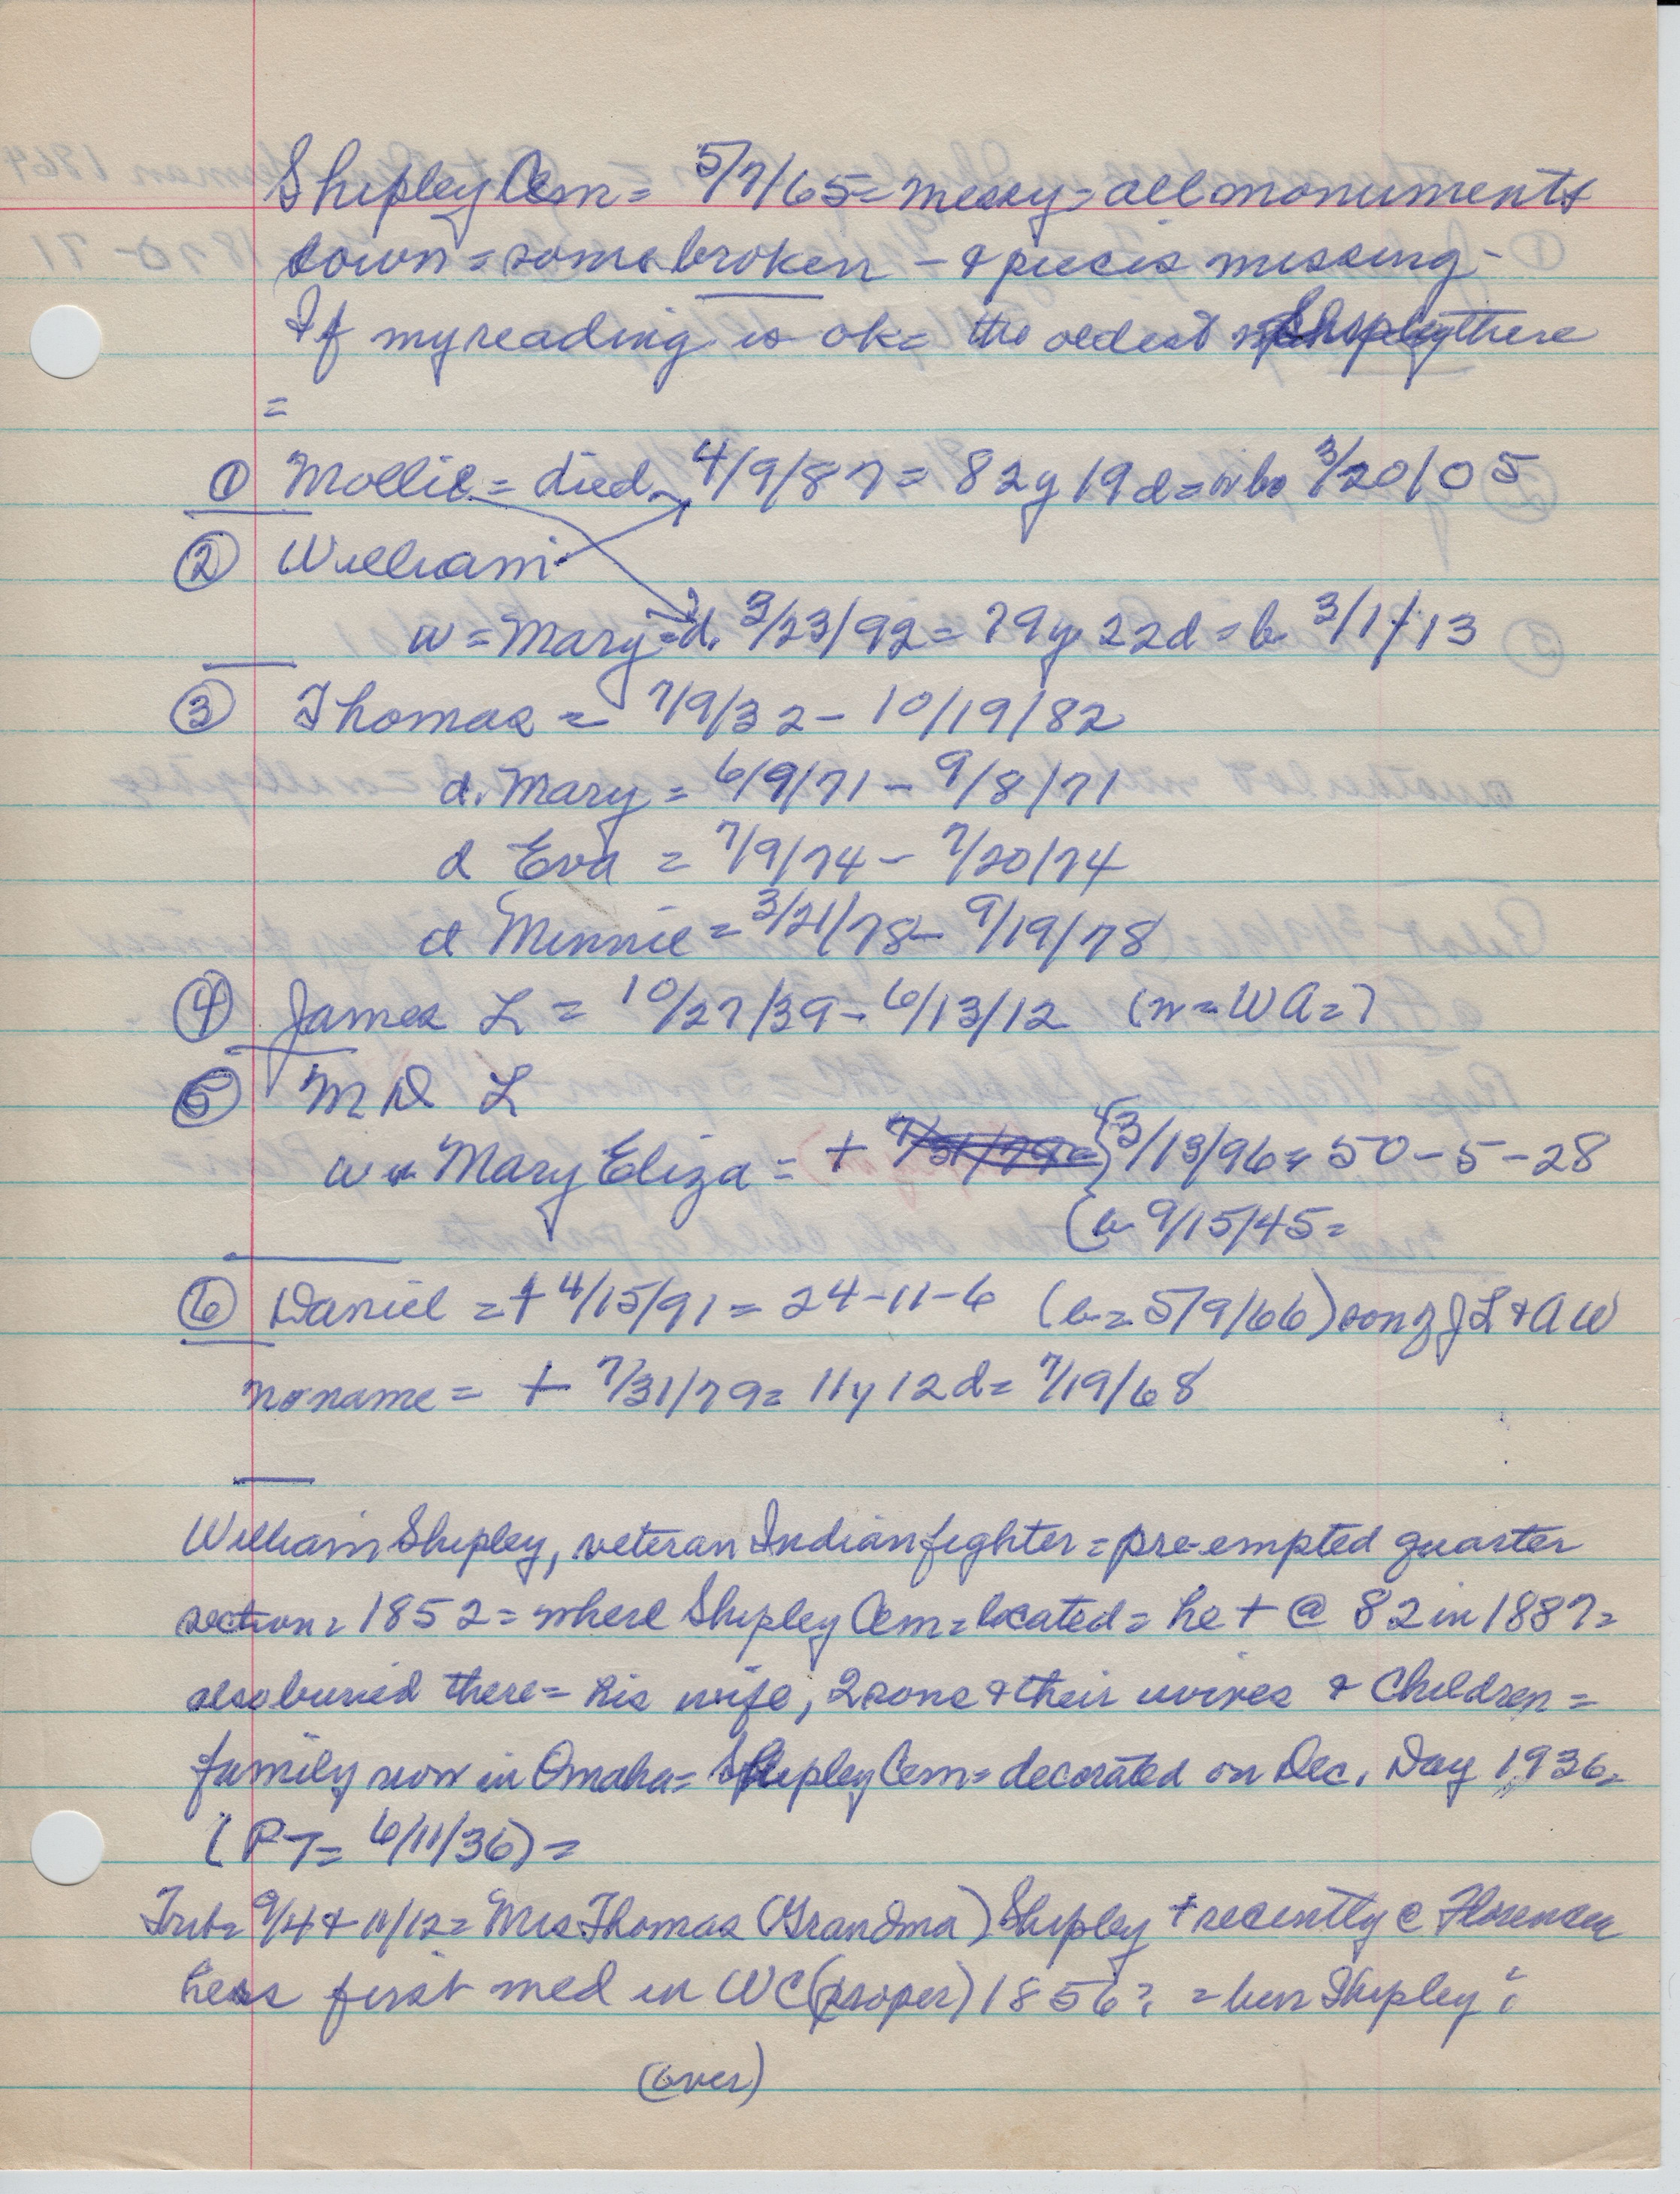 Shipley Cem = 5/7/65 = messy = all monuments
down = some broken - & pieces missing -
If my reading is ok = the oldest Shipley there
=
① Mollie = died 4/9/87 = 82y 19d = b 3/20/05
② William
w = Mary = d. 3/23/92 = 79y 22d = b 3/1/13
③ Thomas = 7/9/32 - 10/19/82
d. Mary = 6/9/71 - 9/8/71
d Eva = 7/9/74 - 7/20/74
d Minnie = 3/21/78 - 9/19/78
④ James L = 10/27/39 - 6/13/12 (w = W A = ?
⑤ M D L
w = Mary Eliza = + 3/13/96 = 50-5-28
(b 9/15/45 =
⑥ Daniel = + 4/15/91 = 24-11-6 (b = 5/9/66) son of J L & A W
no name = + 7/31/79 = 11y 12d = 7/19/68
William Shipley, veteran Indian fighter = pre-empted quarter
section = 1852 = where Shipley Cem = located = he + @ 82 in 1887 =
also buried there = his wife, 2 sons & their wives & Children =
family now in Omaha = Shipley Cem = decorated on Dec. Day 1936 =
(PT = 6/11/36) =
Trib = 9/4 & 11/12 = Mrs Thomas (Grandma) Shipley + recently c Florence
hers first med in WC (proper) 1856? = Shipley?
(over)